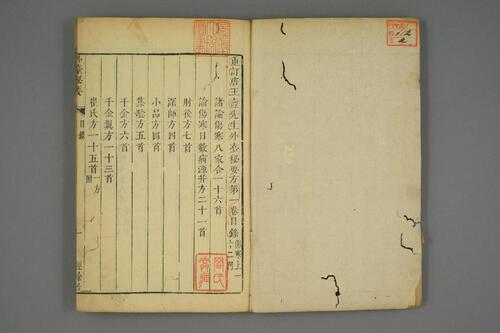 重訂唐王燾先生外臺秘要方第一卷目錄 傷寒上一十二門
諸論傷寒八家合一十六首
論傷寒日數病源并方二十一首
肘後方七首
深師方四首
小品方四首
集驗方五首
千金方六首
千金翼方一十三首
崔氏方一十五首 一方附
外臺秘要
目錄